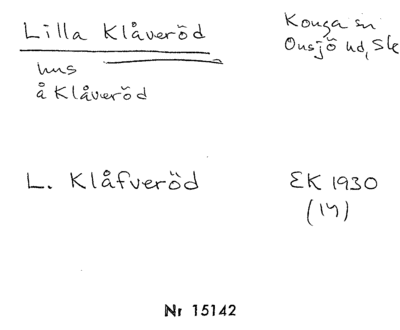 Lilla Klåveröd
Konga sn
Onsjö hd, Sk
hus
å Klåveröd
L. Klåfveröd
EK 1930
(17)
Nr 15142